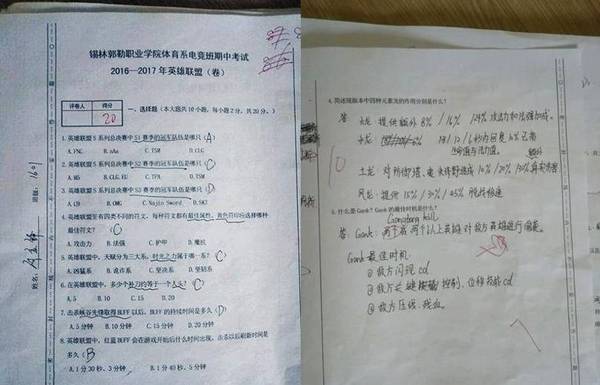 锡林郭勒职业学院体育系电竞班期中考试
2016—2017年英雄联盟(卷)
评卷人 得分
20
一、选择题(本大题共10小题,每小题2分,共20分。)
1.英雄联盟S系列总决赛中S1赛季的冠军队伍是哪只(A)
A.FNC B.aAa C.TSM D.CLG
2.英雄联盟S系列总决赛中S2赛季的冠军队伍是哪只(C)
B.CLG.EU C.TPA D.TSM
3.英雄联盟S系列总决赛中S3赛季的冠军队伍是哪只(D)
A.U9 B.OMG C.Najin Sword D.SKT
4.英雄联盟里有四类不同的符文,每种符文都有最佳属性,黄色符印应选择哪种
最佳符文?(C)
A.攻击力 B.法强 C.护甲 D.魔抗
5.英雄联盟中,天赋分为三大系,时光之力属于哪一系?(C)
A.凶猛系 B.诡诈系 C.坚决系 D.坚韧系
6.在英雄联盟中,多少个补刀约等于一个人头?(C)
A.5 B.10 C.15 D.20
7.击杀峡谷先锋取得BUFF以后,BUFF的持续时间是多久(D)
A.5分钟 B.10分钟 C.15分钟 D.20分钟
8.英雄联盟中,红蓝BUFF会在游戏开始后什么时间出现,击杀以后刷新时间是
多久(B)
A.1分30秒、3分钟 B.1分40秒、5分钟
班级:1601
姓名:
4.简述现版本中四种元素龙的作用分别是什么?
答:火龙:提供额外8%/16%/24%攻击力和法强加成。
水龙:
生命值与法力值。
土龙:对防御塔、史诗野怪造成10%/20%/30%真实伤害
额外
风龙:提供15%/30%/45%脱战移速
10
5.什么是Gank?Gank的最佳时机是什么?
Gangbang kill
答:Gank:两个或两个以上英雄对敌方英雄进行偷袭。
Gank最佳时机:
①敌方闪现cd
②敌方关键控制、位移技能cd
③敌方压线、残血。